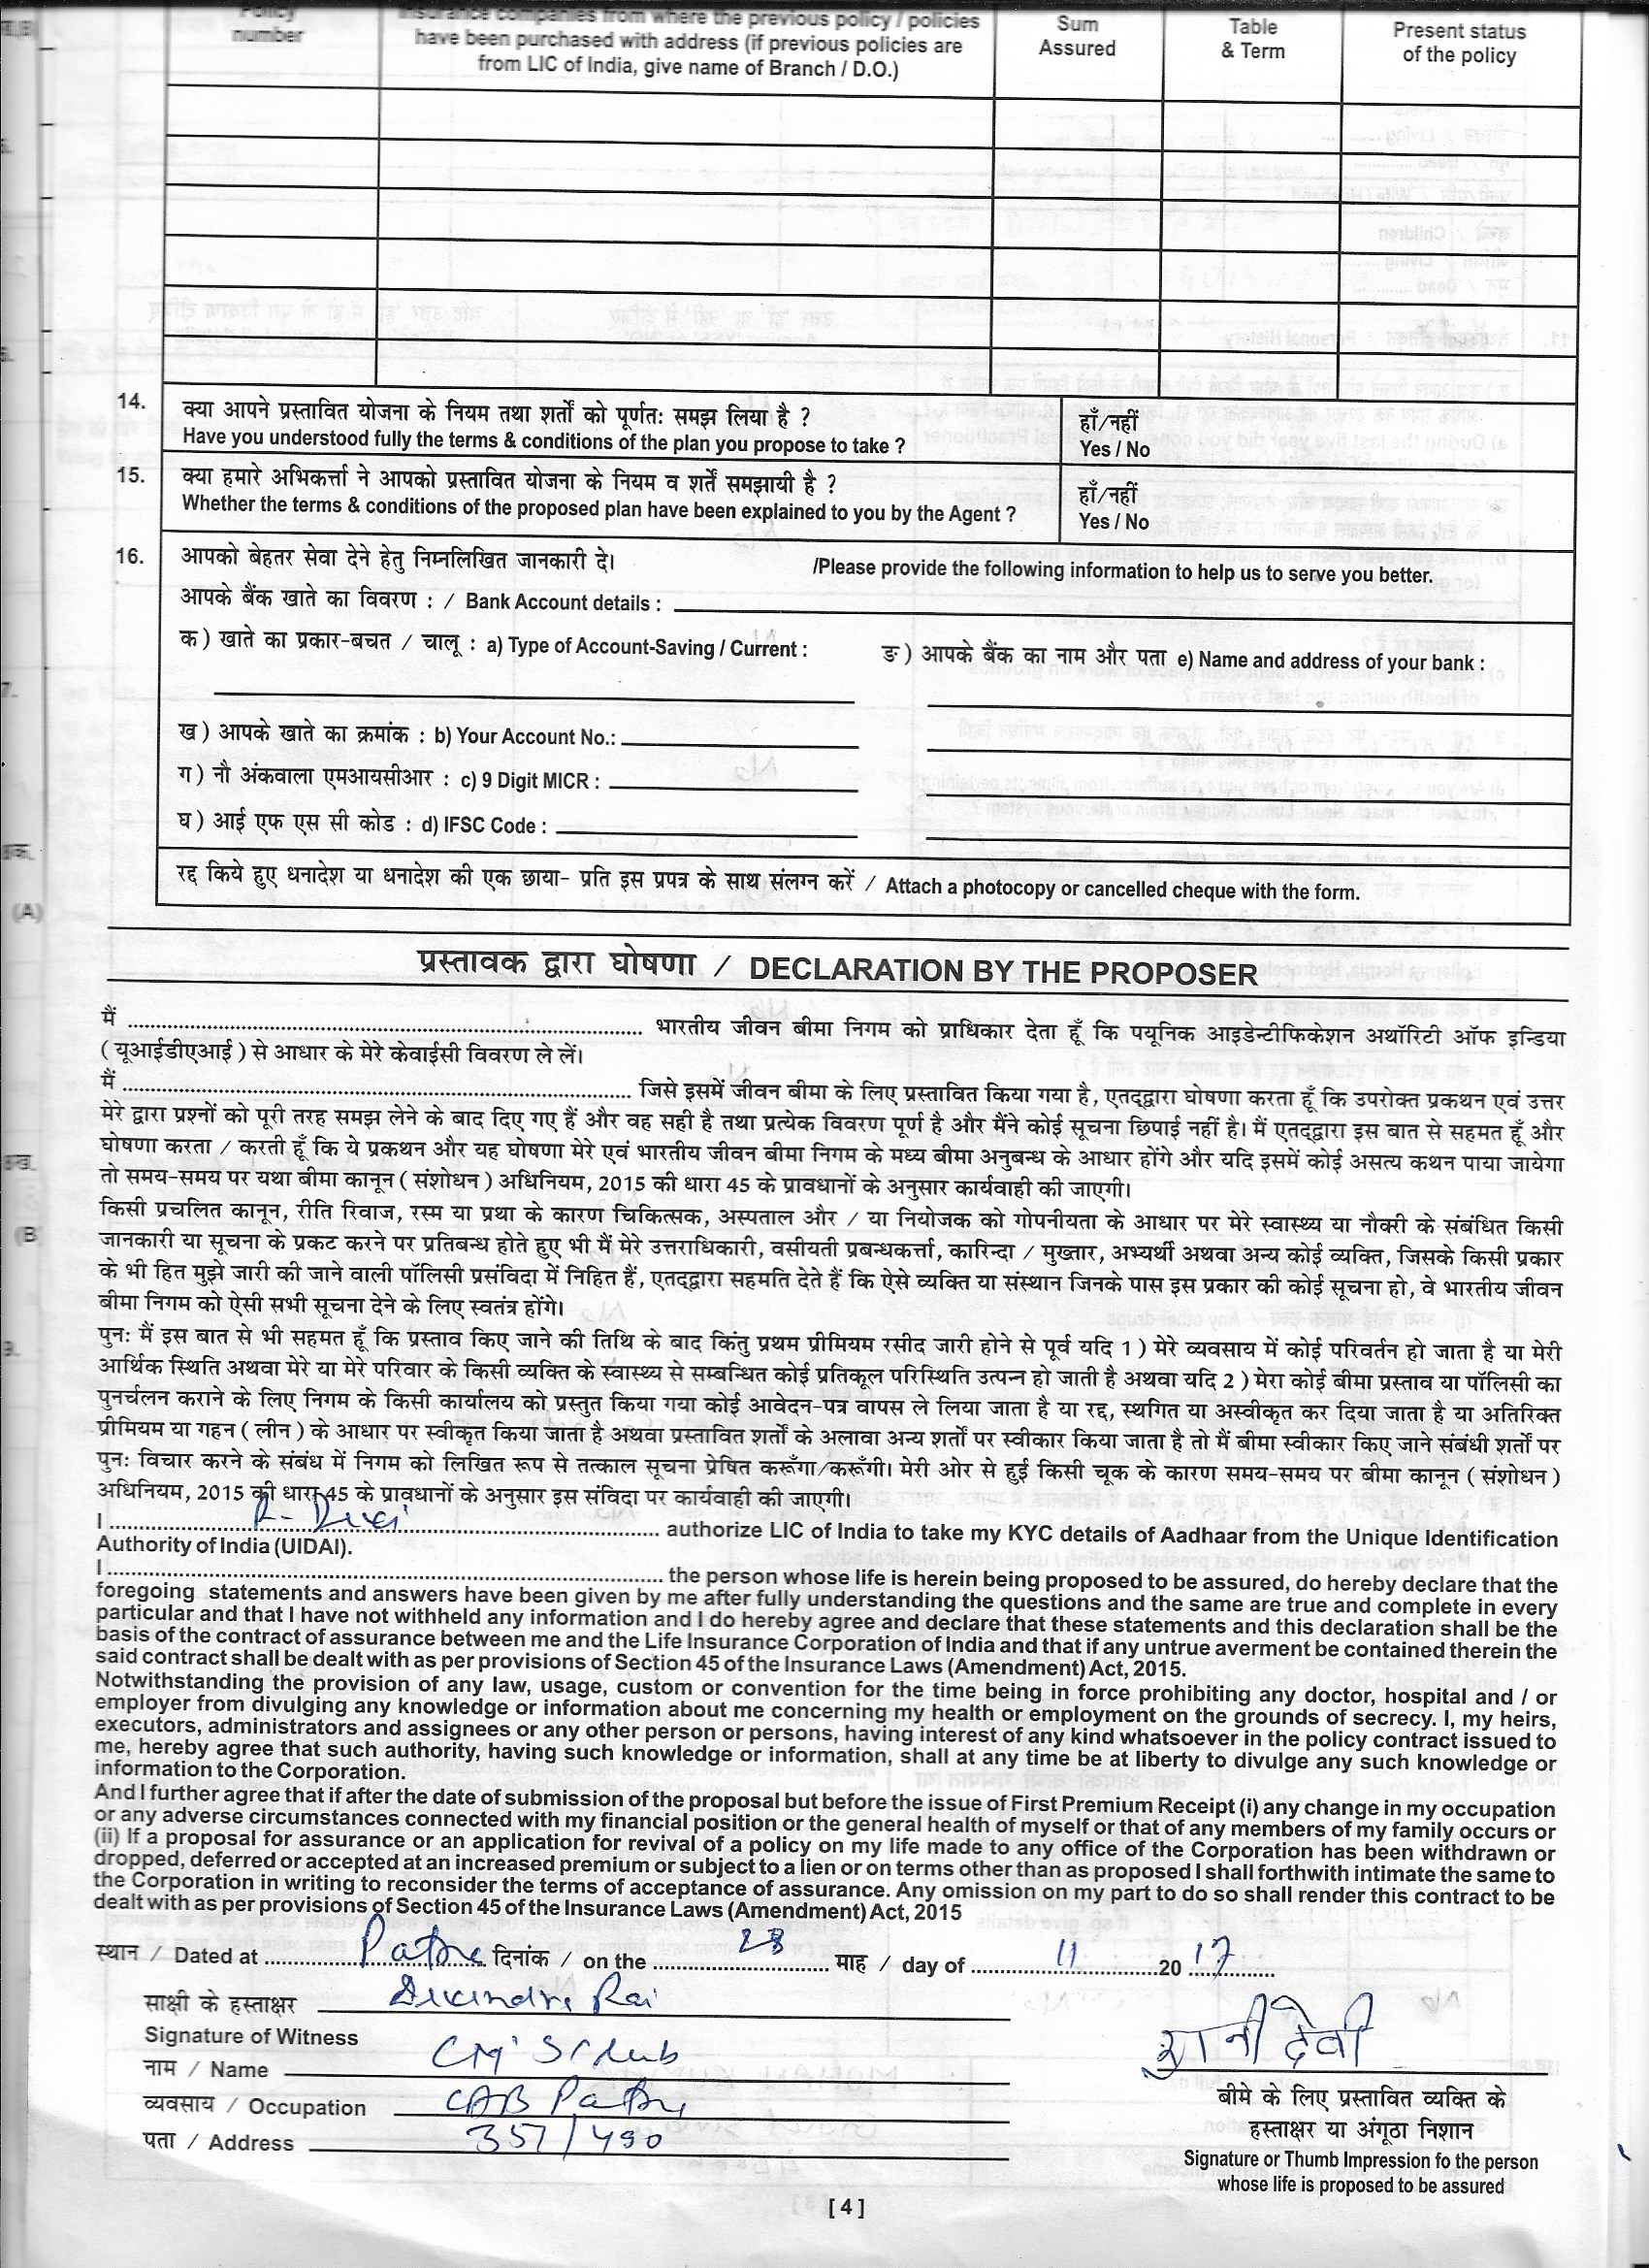 Policy
number
Insurance companies from where the previous policy / policies
have been purchased with address (if previous policies are
from LIC of India, give name of Branch / D.O.)
Sum
Assured
Table
& Term
Present status
of the policy
14. क्या आपने प्रस्तावित योजना के नियम तथा शर्तों को पूर्णतः समझ लिया है ? हाँ/नहीं
Have you understood fully the terms & conditions of the plan you propose to take ? Yes / No
15. क्या हमारे अभिकर्त्ता ने आपको प्रस्तावित योजना के नियम व शर्तें समझायी है ? हाँ/नहीं
Whether the terms & conditions of the proposed plan have been explained to you by the Agent ? Yes / No
16. आपको बेहतर सेवा देने हेतु निम्नलिखित जानकारी दे। /Please provide the following information to help us to serve you better.
आपके बैंक खाते का विवरण : / Bank Account details :
क) खाते का प्रकार-बचत / चालू : a) Type of Account-Saving / Current : ङ) आपके बैंक का नाम और पता e) Name and address of your bank :
ख) आपके खाते का क्रमांक : b) Your Account No.:
ग) नौ अंकवाला एमआयसीआर : c) 9 Digit MICR :
घ) आई एफ एस सी कोड : d) IFSC Code :
रद्द किये हुए धनादेश या धनादेश की एक छाया- प्रति इस प्रपत्र के साथ संलग्न करें / Attach a photocopy or cancelled cheque with the form.
प्रस्तावक द्वारा घोषणा / DECLARATION BY THE PROPOSER
मैं ........ भारतीय जीवन बीमा निगम को प्राधिकार देता हूँ कि पयूनिक आइडेन्टीफिकेशन अथॉरिटी ऑफ इन्डिया
(यूआईडीएआई) से आधार के मेरे केवाईसी विवरण ले लें।
मैं ........ जिसे इसमें जीवन बीमा के लिए प्रस्तावित किया गया है, एतद्द्वारा घोषणा करता हूँ कि उपरोक्त प्रकथन एवं उत्तर
मेरे द्वारा प्रश्नों को पूरी तरह समझ लेने के बाद दिए गए हैं और वह सही है तथा प्रत्येक विवरण पूर्ण है और मैंने कोई सूचना छिपाई नहीं है। मैं एतद्द्वारा इस बात से सहमत हूँ और
घोषणा करता / करती हूँ कि ये प्रकथन और यह घोषणा मेरे एवं भारतीय जीवन बीमा निगम के मध्य बीमा अनुबन्ध के आधार होंगे और यदि इसमें कोई असत्य कथन पाया जायेगा
तो समय-समय पर यथा बीमा कानून (संशोधन) अधिनियम, 2015 की धारा 45 के प्रावधानों के अनुसार कार्यवाही की जाएगी।
किसी प्रचलित कानून, रीति रिवाज, रस्म या प्रथा के कारण चिकित्सक, अस्पताल और / या नियोजक को गोपनीयता के आधार पर मेरे स्वास्थ्य या नौकरी के संबंधित किसी
जानकारी या सूचना के प्रकट करने पर प्रतिबन्ध होते हुए भी मैं मेरे उत्तराधिकारी, वसीयती प्रबन्धकर्त्ता, कारिन्दा / मुख्तार, अभ्यर्थी अथवा अन्य कोई व्यक्ति, जिसके किसी प्रकार
के भी हित मुझे जारी की जाने वाली पॉलिसी प्रसंविदा में निहित हैं, एतद्द्वारा सहमति देते हैं कि ऐसे व्यक्ति या संस्थान जिनके पास इस प्रकार की कोई सूचना हो, वे भारतीय जीवन
बीमा निगम को ऐसी सभी सूचना देने के लिए स्वतंत्र होंगे।
पुनः मैं इस बात से भी सहमत हूँ कि प्रस्ताव किए जाने की तिथि के बाद किंतु प्रथम प्रीमियम रसीद जारी होने से पूर्व यदि 1) मेरे व्यवसाय में कोई परिवर्तन हो जाता है या मेरी
आर्थिक स्थिति अथवा मेरे या मेरे परिवार के किसी व्यक्ति के स्वास्थ्य से सम्बन्धित कोई प्रतिकूल परिस्थिति उत्पन्न हो जाती है अथवा यदि 2) मेरा कोई बीमा प्रस्ताव या पॉलिसी का
पुनर्चलन कराने के लिए निगम के किसी कार्यालय को प्रस्तुत किया गया कोई आवेदन-पत्र वापस ले लिया जाता है या रद्द, स्थगित या अस्वीकृत कर दिया जाता है या अतिरिक्त
प्रीमियम या गहन (लीन) के आधार पर स्वीकृत किया जाता है अथवा प्रस्तावित शर्तों के अलावा अन्य शर्तों पर स्वीकार किया जाता है तो मैं बीमा स्वीकार किए जाने संबंधी शर्तों पर
पुनः विचार करने के संबंध में निगम को लिखित रूप से तत्काल सूचना प्रेषित करूँगा/करूँगी। मेरी ओर से हुई किसी चूक के कारण समय-समय पर बीमा कानून (संशोधन)
अधिनियम, 2015 की धारा 45 के प्रावधानों के अनुसार इस संविदा पर कार्यवाही की जाएगी।
I ........ R. Devi ........ authorize LIC of India to take my KYC details of Aadhaar from the Unique Identification
Authority of India (UIDAI).
I ........ the person whose life is herein being proposed to be assured, do hereby declare that the
foregoing statements and answers have been given by me after fully understanding the questions and the same are true and complete in every
particular and that I have not withheld any information and I do hereby agree and declare that these statements and this declaration shall be the
basis of the contract of assurance between me and the Life Insurance Corporation of India and that if any untrue averment be contained therein the
said contract shall be dealt with as per provisions of Section 45 of the Insurance Laws (Amendment) Act, 2015.
Notwithstanding the provision of any law, usage, custom or convention for the time being in force prohibiting any doctor, hospital and / or
employer from divulging any knowledge or information about me concerning my health or employment on the grounds of secrecy. I, my heirs,
executors, administrators and assignees or any other person or persons, having interest of any kind whatsoever in the policy contract issued to
me, hereby agree that such authority, having such knowledge or information, shall at any time be at liberty to divulge any such knowledge or
information to the Corporation.
And I further agree that if after the date of submission of the proposal but before the issue of First Premium Receipt (i) any change in my occupation
or any adverse circumstances connected with my financial position or the general health of myself or that of any members of my family occurs or
(ii) If a proposal for assurance or an application for revival of a policy on my life made to any office of the Corporation has been withdrawn or
dropped, deferred or accepted at an increased premium or subject to a lien or on terms other than as proposed I shall forthwith intimate the same to
the Corporation in writing to reconsider the terms of acceptance of assurance. Any omission on my part to do so shall render this contract to be
dealt with as per provisions of Section 45 of the Insurance Laws (Amendment) Act, 2015
स्थान / Dated at ........ दिनांक / on the 28 माह / day of 11 20 17
साक्षी के हस्ताक्षर
Signature of Witness Rai
नाम / Name
व्यवसाय / Occupation CAB
पता / Address 357/490
रानी देवी
बीमे के लिए प्रस्तावित व्यक्ति के
हस्ताक्षर या अंगूठा निशान
Signature or Thumb Impression fo the person
whose life is proposed to be assured
[ 4 ]